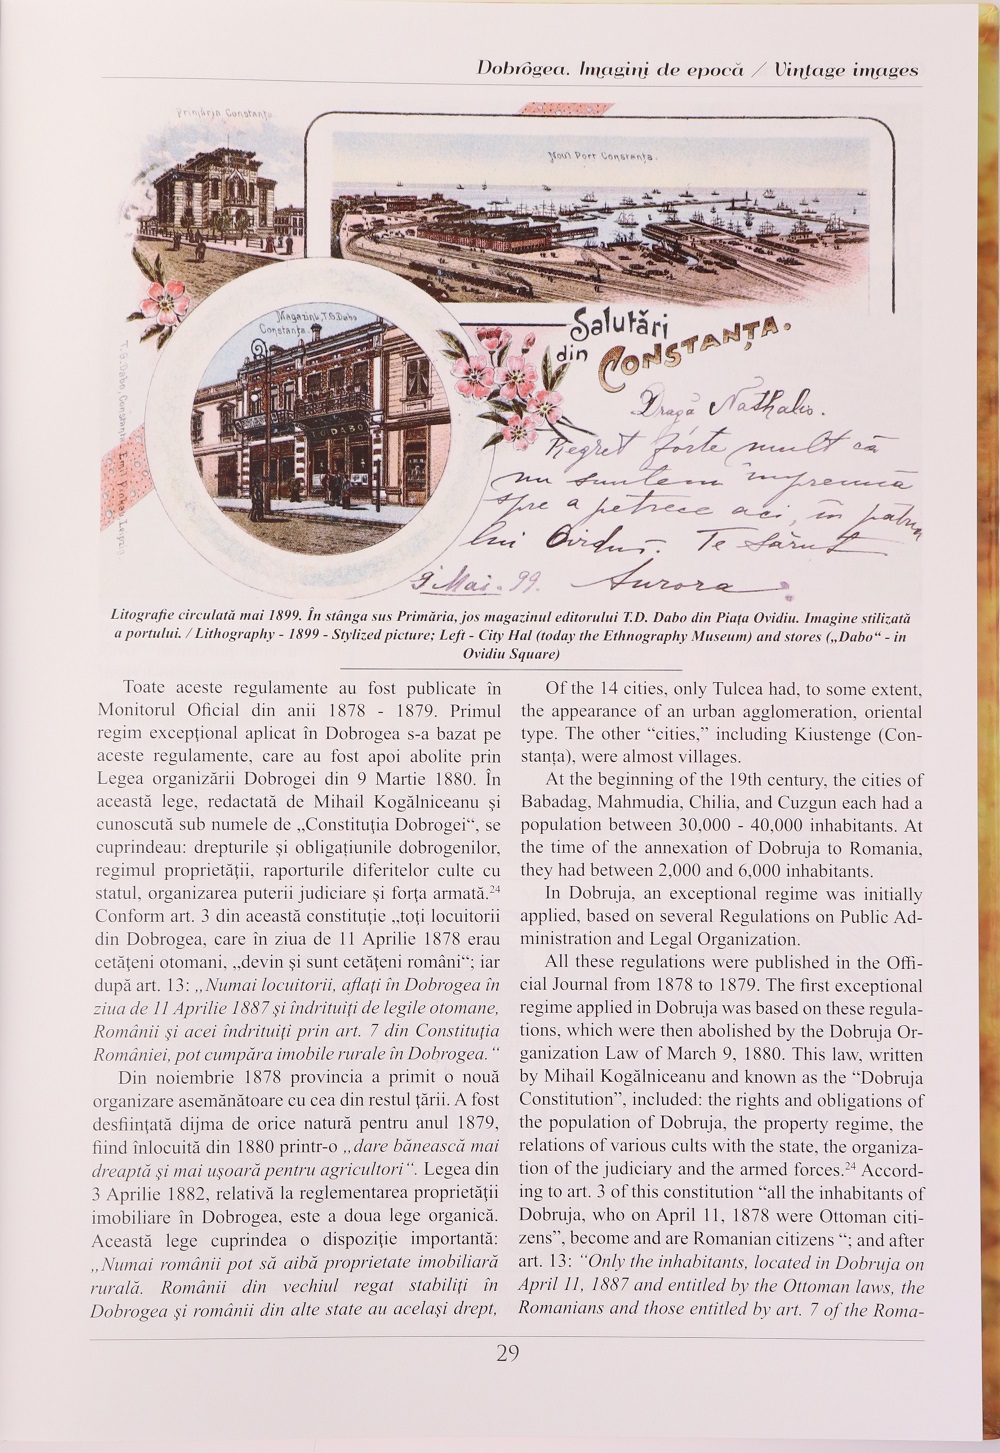 Dobrogea. Imagini de epocă / Vintage images
Primăria Constanța
Noul Port Constanța.
Magazinu T.D. Dabo
Constanța.
T. D. DABO
T. D. Dabo, Constanța
Salutări
din
CONSTANȚA.
Dragă Nathalio.
Regret forte mult că
nu suntem împreună
spre a petrece aci, în patria
lui Ovidus. Te sărut
9 Mai. 99. Aurora
Litografie circulată mai 1899. În stânga sus Primăria, jos magazinul editorului T.D. Dabo din Piața Ovidiu. Imagine stilizată
a portului. / Lithography - 1899 - Stylized picture; Left - City Hal (today the Ethnography Museum) and stores („Dabo“ - in
Ovidiu Square)
Toate aceste regulamente au fost publicate în
Monitorul Oficial din anii 1878 - 1879. Primul
regim excepțional aplicat în Dobrogea s-a bazat pe
aceste regulamente, care au fost apoi abolite prin
Legea organizării Dobrogei din 9 Martie 1880. În
această lege, redactată de Mihail Kogălniceanu și
cunoscută sub numele de „Constituția Dobrogei“, se
cuprindeau: drepturile și obligațiunile dobrogenilor,
regimul proprietății, raporturile diferitelor culte cu
statul, organizarea puterii judiciare și forța armată.24
Conform art. 3 din această constituție „toți locuitorii
din Dobrogea, care în ziua de 11 Aprilie 1878 erau
cetățeni otomani, „devin și sunt cetățeni români“; iar
după art. 13: „Numai locuitorii, aflați în Dobrogea în
ziua de 11 Aprilie 1887 și îndrituiți de legile otomane,
Românii și acei îndrituiți prin art. 7 din Constituția
României, pot cumpăra imobile rurale în Dobrogea.“
Din noiembrie 1878 provincia a primit o nouă
organizare asemănătoare cu cea din restul țării. A fost
desființată dijma de orice natură pentru anul 1879,
fiind înlocuită din 1880 printr-o „dare bănească mai
dreaptă și mai ușoară pentru agricultori“. Legea din
3 Aprilie 1882, relativă la reglementarea proprietății
imobiliare în Dobrogea, este a doua lege organică.
Această lege cuprindea o dispoziție importantă:
„Numai românii pot să aibă proprietate imobiliară
rurală. Românii din vechiul regat stabiliți în
Dobrogea și românii din alte state au același drept,
Of the 14 cities, only Tulcea had, to some extent,
the appearance of an urban agglomeration, oriental
type. The other “cities,” including Kiustenge (Con-
stanța), were almost villages.
At the beginning of the 19th century, the cities of
Babadag, Mahmudia, Chilia, and Cuzgun each had a
population between 30,000 - 40,000 inhabitants. At
the time of the annexation of Dobruja to Romania,
they had between 2,000 and 6,000 inhabitants.
In Dobruja, an exceptional regime was initially
applied, based on several Regulations on Public Ad-
ministration and Legal Organization.
All these regulations were published in the Offi-
cial Journal from 1878 to 1879. The first exceptional
regime applied in Dobruja was based on these regula-
tions, which were then abolished by the Dobruja Or-
ganization Law of March 9, 1880. This law, written
by Mihail Kogălniceanu and known as the “Dobruja
Constitution”, included: the rights and obligations of
the population of Dobruja, the property regime, the
relations of various cults with the state, the organiza-
tion of the judiciary and the armed forces.24 Accord-
ing to art. 3 of this constitution “all the inhabitants of
Dobruja, who on April 11, 1878 were Ottoman citi-
zens”, become and are Romanian citizens “; and after
art. 13: “Only the inhabitants, located in Dobruja on
April 11, 1887 and entitled by the Ottoman laws, the
Romanians and those entitled by art. 7 of the Roma-
29